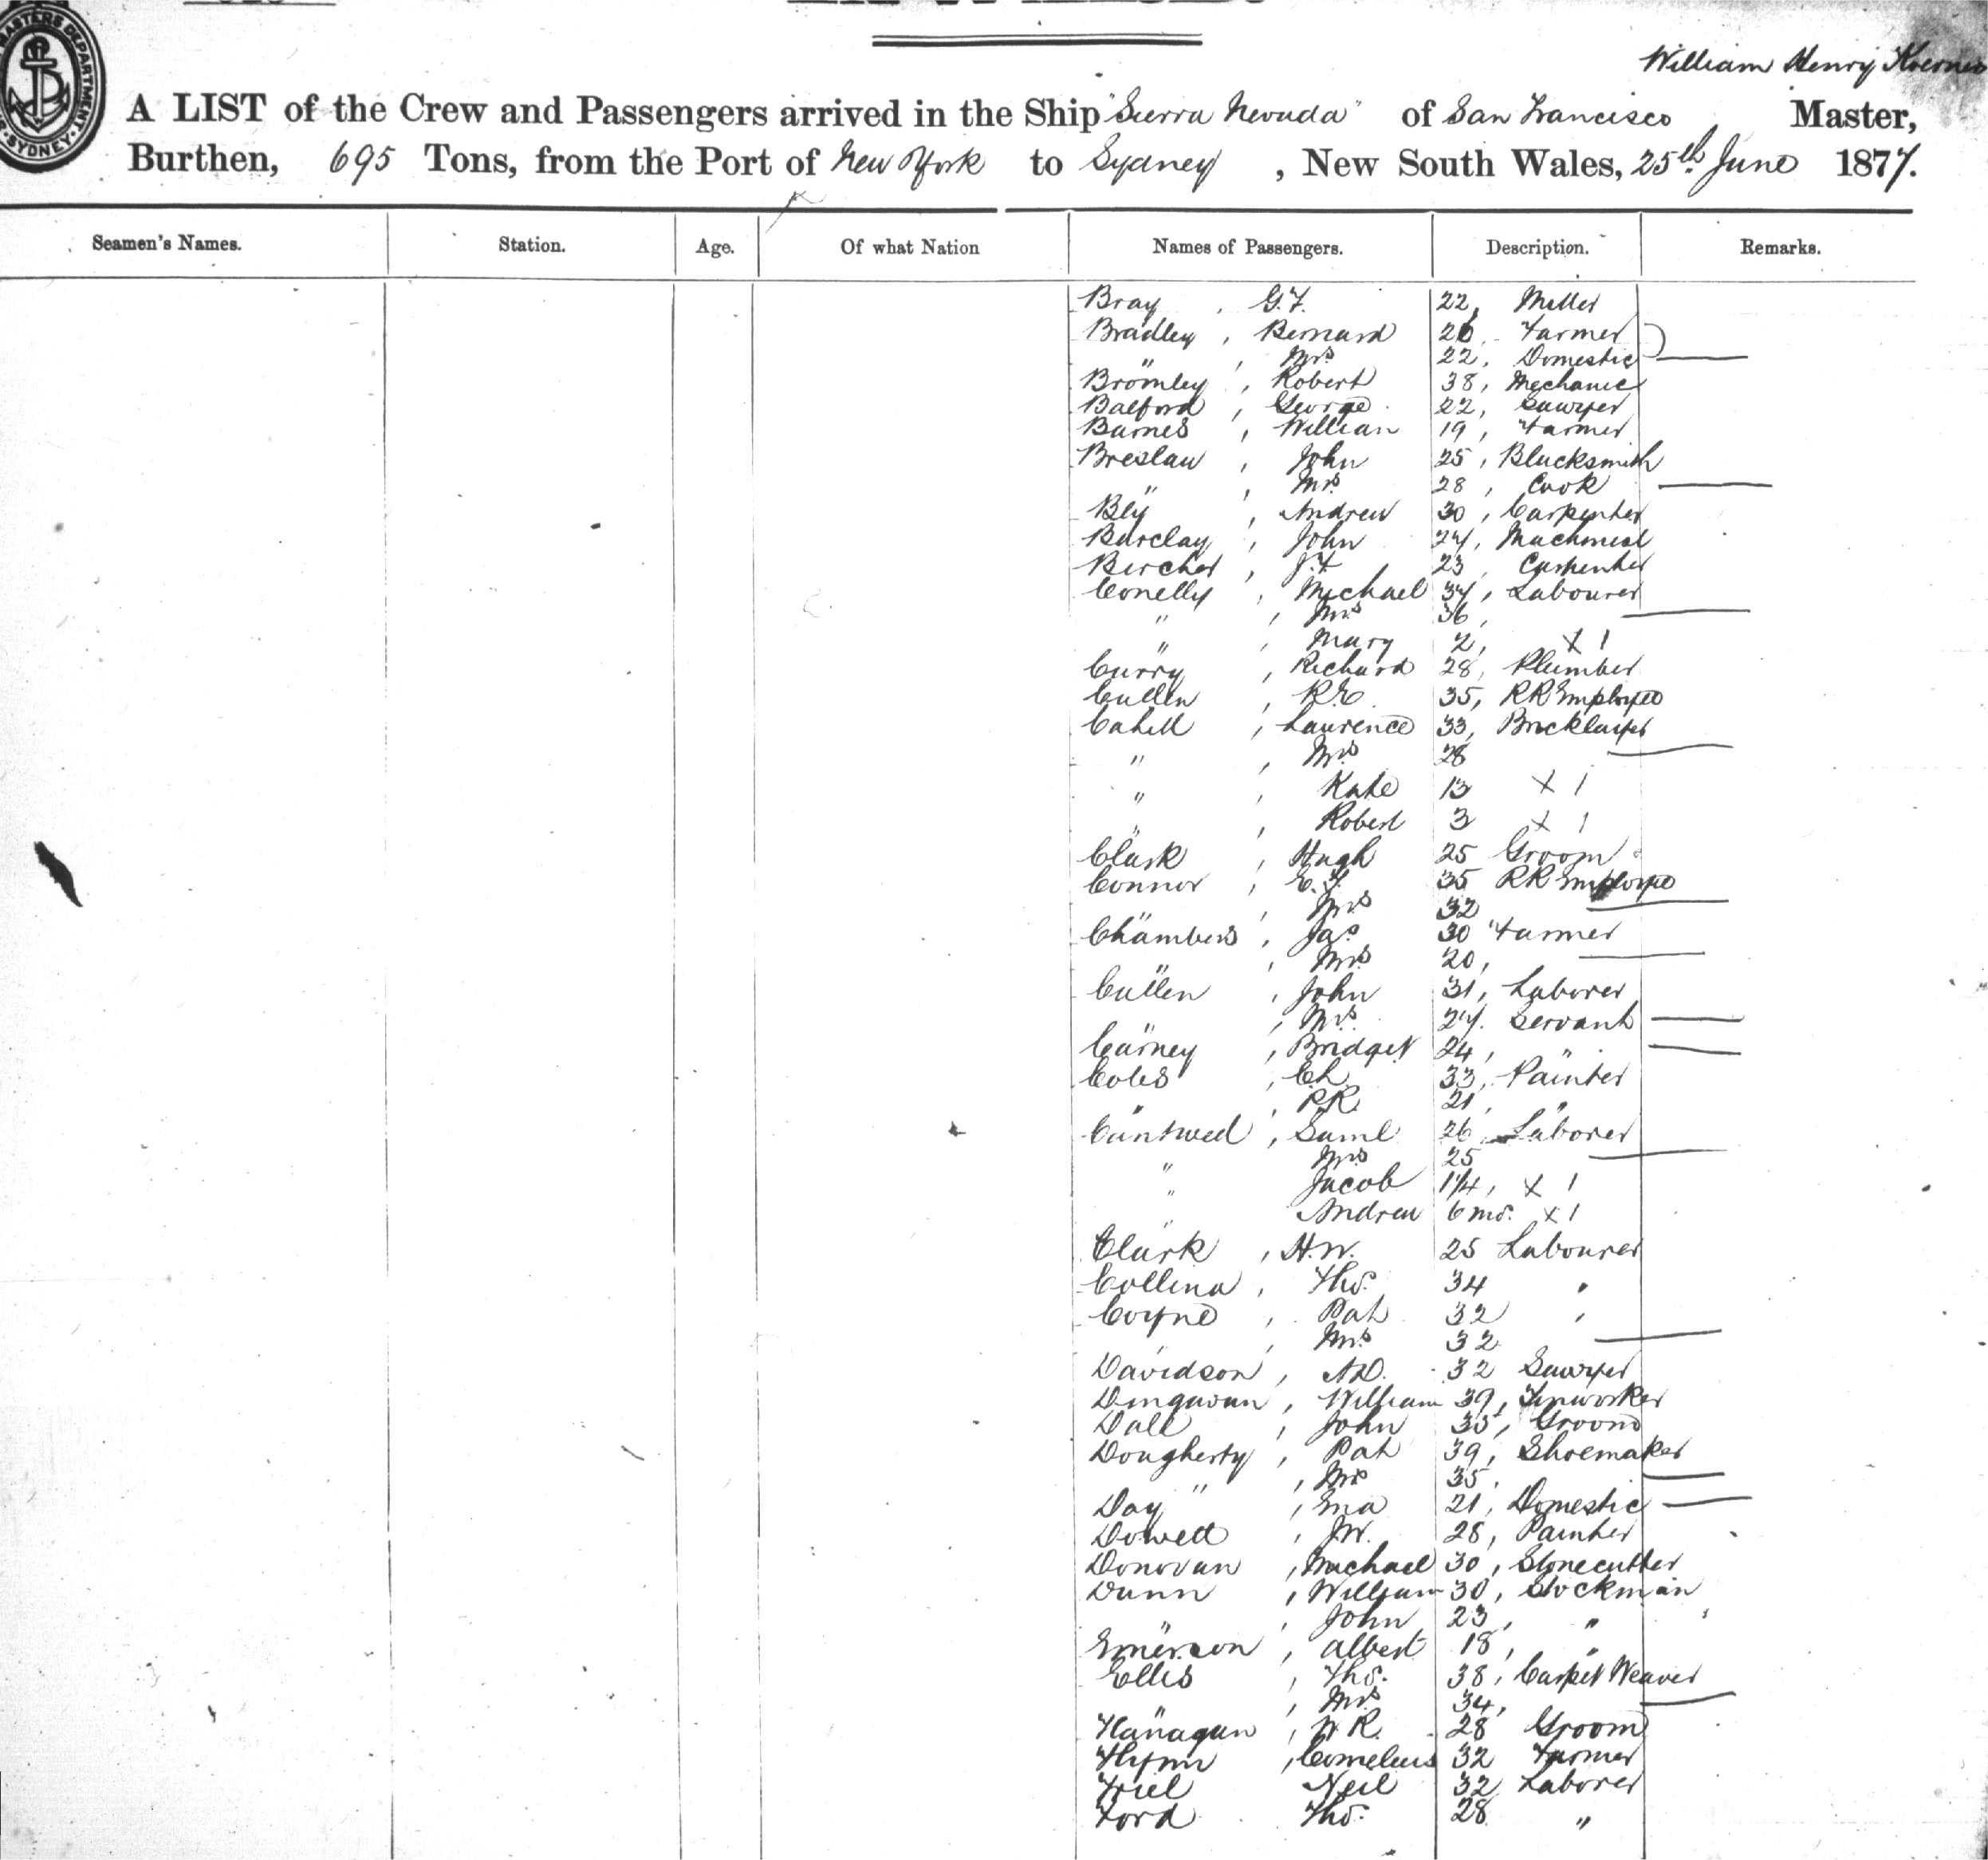 MASTERS DEPARTMENT SYDNEY
William Henry
A LIST of the Crew and Passengers arrived in the Ship "Sierra Nevada" of San Francisco Master,
Burthen, 695 Tons, from the Port of New York to Sydney, New South Wales, 25th June 1877.
Seamen's Names. Station. Age. Of what Nation Names of Passengers. Description. Remarks.
Bray, G.F. 22, Miller
Bradley, Bernard 26, Farmer
", Mrs 22, Domestic
Bromley, Robert 38, Mechanic
Balford, George 22, Sawyer
Barnes, William 19, Farmer
Breslaw, John 25, Blacksmith
", Mrs 28, Cook
Bly, Andrew 30, Carpenter
Barclay, John 27, Machinist
Bircher, J.F. 23 Carpenter
Conelly, Michael 37, Labourer
", Mrs 36,
", Mary 2, X 1
Curry, Richard 28, Plumber
Cullen, R.E. 35, RR Employee
Cahill, Laurence 33, Bricklayer
", Mrs 28
", Kate 13 X 1
", Robert 3 X 1
Clark, Hugh 25 Groom
Connor, E. 35 RR Employee
", Mrs 32
Chambers, Jas 30 Farmer
", Mrs 20,
Cullen, John 31, Laborer
", Mrs 27. Servant
Carney, Bridget 24, "
Coles, Ch. 33, Painter
", R.R. 21, "
Cantwell, Saml 26, Laborer
" Mrs 25
" Jacob 1 1/4, X 1
" Andrew 6 mos. X 1
Clark, H.W. 25 Labourer
Collina, Thos. 34 "
Coyne, Pat 32 "
", Mrs 32
Davidson, A.D. 32 Sawyer
Dingavan, William 39, Tinworker
Dale, John 35, Groom
Dougherty, Pat 39, Shoemaker
", Mrs 35,
Day, Ema 21, Domestic
Dowell, J.W. 28, Painter
Donovan, Michael 30, Stonecutter
Dunn, William 30, Stockman
", John 23, "
Emerson, Albert 18, "
Ellis, Thos. 38, Carpet Weaver
", Mrs 34,
Flanagan, W.R. 28 Groom
Flynn, Cornelius 32 Farmer
Friel Neil 32 Laborer
Ford Thos. 28 "